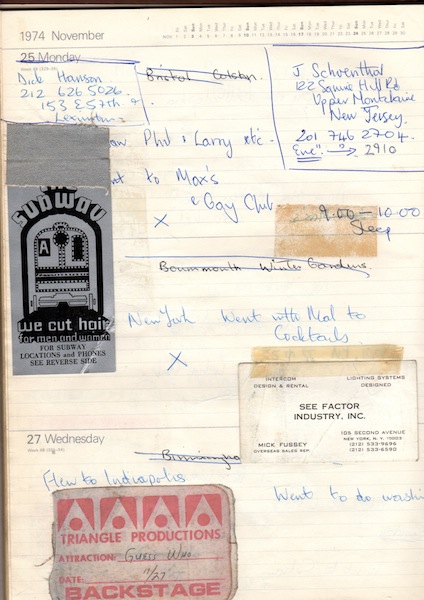 1974 November
25 Monday
Dick Hanson
212 626 5026.
153 E 57th &
Lexington
Bristol Colston.
J Schoenthal
122 Squire Hill Rd
Upper Montclaire
New Jersey.
201 746 2704.
Eve" " → 2910
Phil & Larry etc.
to Max's
& Gay Club
X
9.00 - 10.00
Sleep
Bournmouth Winter Gardens.
SUBWAY
A
we cut hair
for men and women
FOR SUBWAY
LOCATIONS and PHONES
SEE REVERSE SIDE
New York Went with Mal to
Cocktails
X
INTERCOM
DESIGN & RENTAL
LIGHTING SYSTEMS
DESIGNED
SEE FACTOR
INDUSTRY, INC.
MICK FUSSEY
OVERSEAS SALES REP.
105 SECOND AVENUE
NEW YORK, N.Y. 10003
(212) 533-9696
(212) 533-6590
27 Wednesday
Flew to Indianapolis
Went to do washi
TRIANGLE PRODUCTIONS
ATTRACTION: GUESS WHO
DATE: 11/27
BACKSTAGE